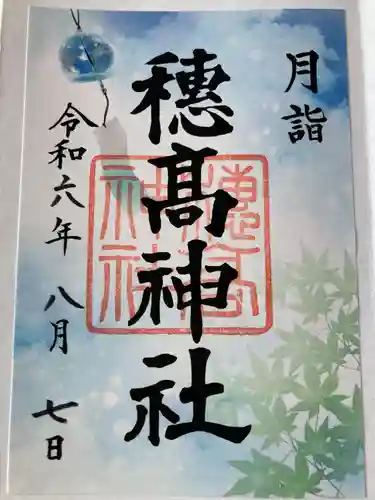 月詣
穂髙神社
穂高
神社
令和六年 八月 七日